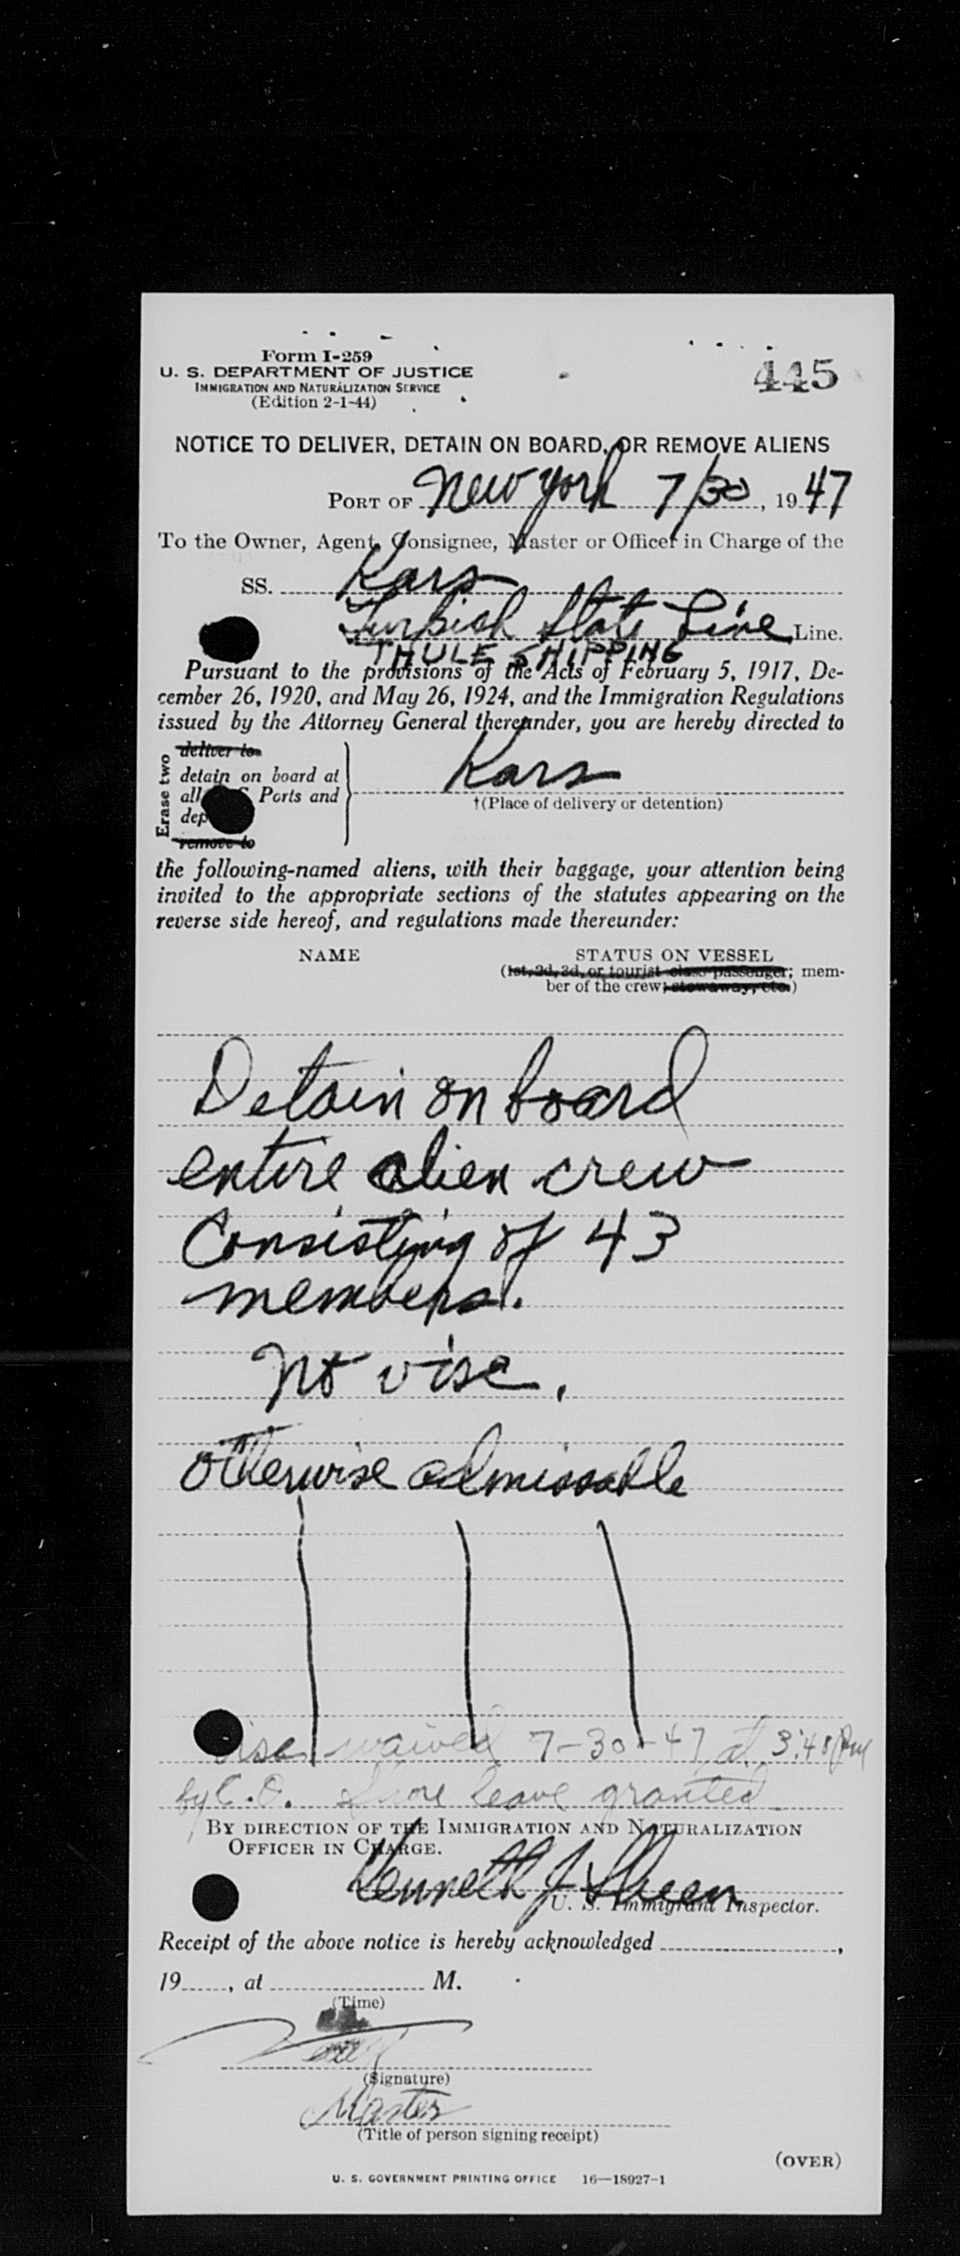 Form I-259
U. S. DEPARTMENT OF JUSTICE
IMMIGRATION AND NATURALIZATION SERVICE
(Edition 2-1-44)
445
NOTICE TO DELIVER, DETAIN ON BOARD, OR REMOVE ALIENS
PORT OF New York 7/30, 1947
To the Owner, Agent, Consignee, Master or Officer in Charge of the
SS. Kars
Turkish State Line Line.
THULE SHIPPING
Pursuant to the provisions of the Acts of February 5, 1917, De-
cember 26, 1920, and May 26, 1924, and the Immigration Regulations
issued by the Attorney General thereunder, you are hereby directed to
Erase two
deliver to
detain on board at
all S Ports and
dep
remove to
Kars
†(Place of delivery or detention)
the following-named aliens, with their baggage, your attention being
invited to the appropriate sections of the statutes appearing on the
reverse side hereof, and regulations made thereunder:
NAME
STATUS ON VESSEL
(1st, 2d, 3d, or tourist class passenger; mem-
ber of the crew; stowaway, etc.)
Detain on board
entire alien crew
Consisting of 43
members.
No vise.
otherwise admissable
vise waived 7-30-47 at 3:48 PM
by C.O. Shore leave granted
BY DIRECTION OF THE IMMIGRATION AND NATURALIZATION
OFFICER IN CHARGE.
Kenneth J Sheen
U. S. Immigrant Inspector.
Receipt of the above notice is hereby acknowledged ,
19 , at M.
(Time)
(Signature)
Master
(Title of person signing receipt)
(OVER)
U. S. GOVERNMENT PRINTING OFFICE 16—18927-1